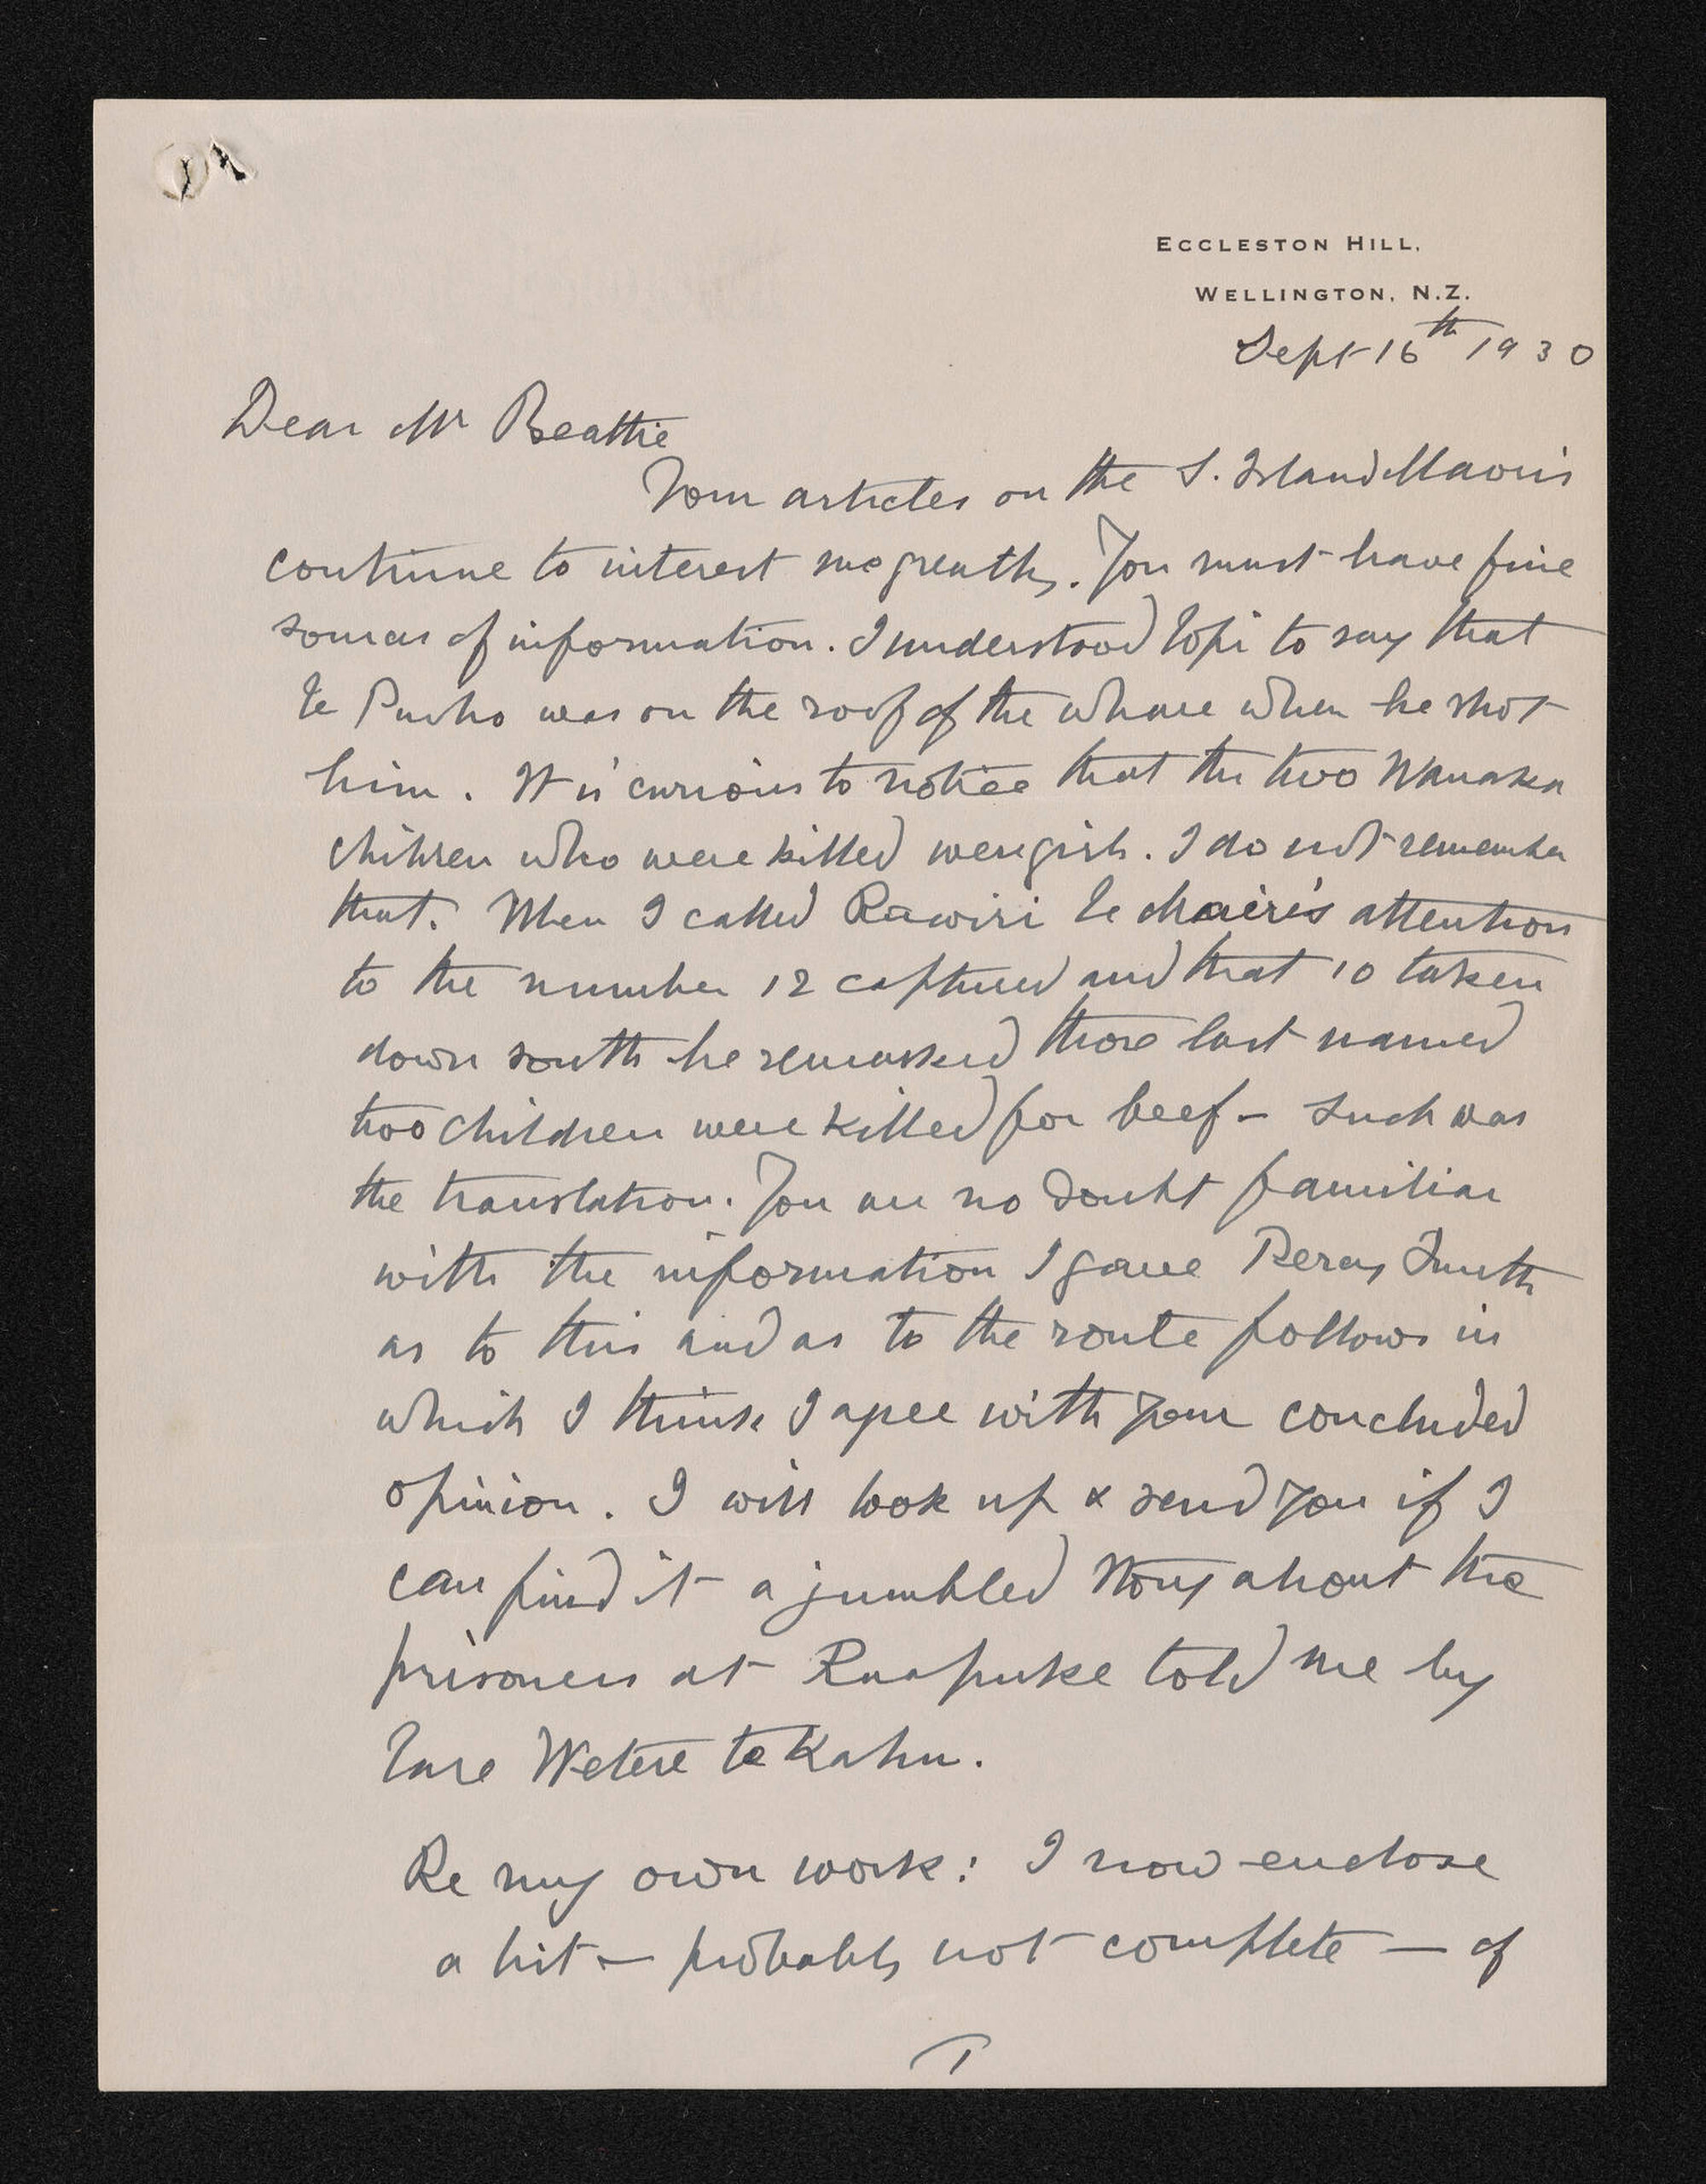 ECCLESTON HILL,
WELLINGTON, N.Z.
Sept 16th 1930
Dear Mr Beattie
Your articles on the S. Island Maoris
continue to interest me greatly. You must have fine
sources of information. I understood Topi to say that
Te Puoho was on the roof of the whare when he shot
him. It is curious to notice that the two Wanaka
children who were killed were girls. I do not remember
that. When I called Rawiri Te Maire's attention
to the number 12 captured and that 10 taken
down south he remarked those last named
two children were killed for beef - such was
the translation. You are no doubt familiar
with the information I gave Percy Smith
as to this and as to the route follows in
which I think I agree with your concluded
opinion. I will look up & send you if I
can find it a jumbled story about the
prisoners at Ruapuke told me by
Tare Wetere te Kahu.
Re my own work: I now enclose
a list - probably not complete - of